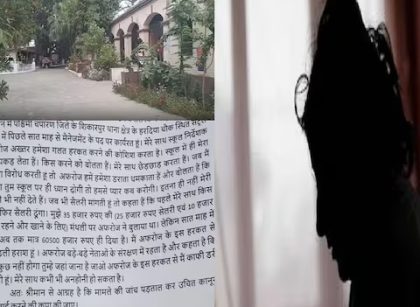 में पश्चिमी चंपारण जिले के शिकारपुर थाना क्षेत्र के हरदिया चौक स्थित
में पिछले सात माह से मैनेजमेंट के पद पर कार्यरत हूं। मेरे साथ स्कूल निर्देशक
अख्तर हमेशा गलत हरकत करने की कोशिश करता है। स्कूल में ही मेरा
पकड़ लेता हैं। किस करने को बोलता हैं। मेरे साथ छेड़छाड़ करता है। जब मैं
विरोध करती हूं तो अफरोज हमें हमेशा डराता धमकाता हैं और बोलता है कि
तुम स्कूल पर ही ध्यान दोगी तो हमसे प्यार कब करोगी। इतना ही नहीं मेरी
भी नहीं देते हैं। जब भी सैलरी मांगती हूं तो कहता है कि पहले मेरे साथ किस
फिर सैलरी दूंगा। मुझे 35 हजार रुपए की (25 हजार रुपए सैलरी एवं 10 हजार
रहने और खाने के लिए) मंथली पर अफरोज ने बुलाया था। लेकिन सात माह में
अब तक मात्र 60500 हजार रुपए ही दिया है। मैं अफरोज के इस हरकत से
हताश हूं। बड़े-बड़े नेताओं के संरक्षण में रहता है और कहता है कि
कुछ नहीं होगा तुम्हे जहां जाना है जाओ अफरोज के इस हरकत से मैं काफी डरी
हूं। मेरे साथ कभी भी अनहोनी हो सकता है।
अतः श्रीमान से आग्रह है कि मामले की जांच पड़ताल कर उचित कानून
करने की कृपा की जाए।